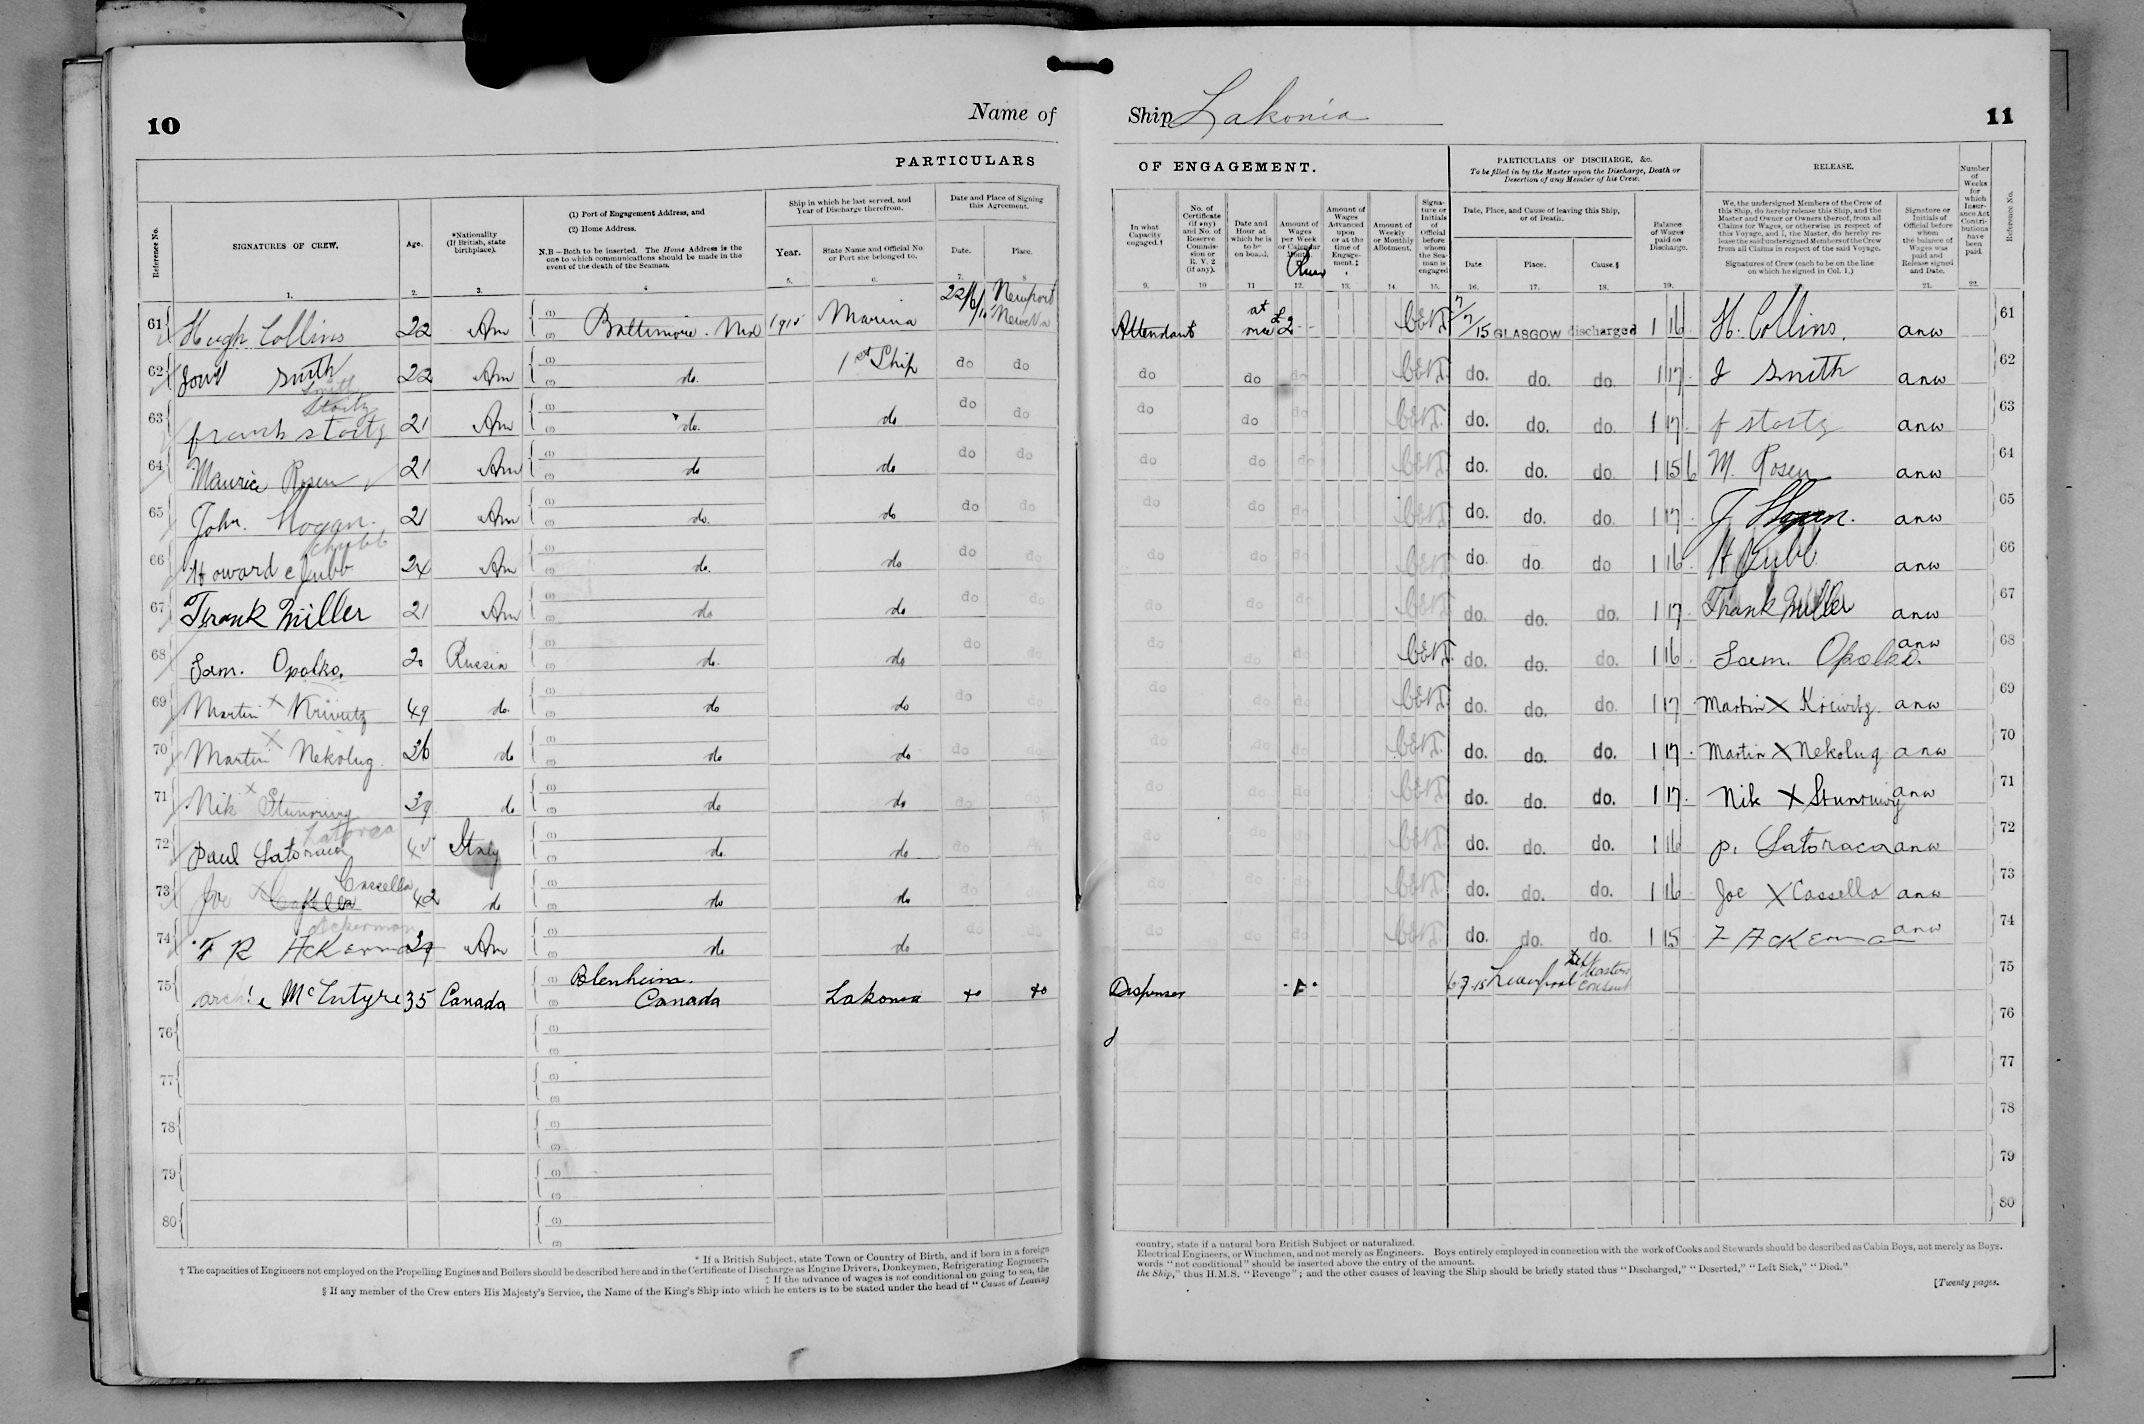 10
Name of
Ship Lakonia
11
PARTICULARS
OF ENGAGEMENT.
PARTICULARS OF DISCHARGE, &c.
To be filled in by the Master upon the Discharge, Death or
Desertion of any Member of his Crew.
RELEASE.
Number of Weeks for which Insurance Act Contributions have been paid.
Reference No.
SIGNATURES OF CREW.
Age.
*Nationality
(If British, state birthplace).
(1) Port of Engagement Address, and
(2) Home Address.
N.B.—Both to be inserted. The Home Address is the
one to which communications should be made in the
event of the death of the Seaman.
Ship in which he last served, and
Year of Discharge therefrom.
Year.
State Name and Official No
or Port she belonged to.
Date and Place of Signing
this Agreement.
Date.
Place.
In what Capacity engaged.†
No. of Certificate (if any) and No. of Reserve Commission or R. V. 2 (if any).
Date and Hour at which he is to be on board.
Amount of Wages per Week or Calendar Month.
Amount of Wages Advanced upon or at the time of Engagement.‡
Amount of Weekly or Monthly Allotment.
Signature or Initials of Official before whom the Seaman is engaged
Date, Place, and Cause of leaving this Ship,
or of Death.
Date.
Place.
Cause.§
Balance of Wages paid on Discharge.
We, the undersigned Members of the Crew of
this Ship, do hereby release this Ship, and the
Master and Owner or Owners thereof, from all
Claims for Wages, or otherwise in respect of
this Voyage, and I, the Master, do hereby release the said undersigned Members of the Crew
from all Claims in respect of the said Voyage.
Signatures of Crew (each to be on the line
on which he signed in Col. 1.)
Signature or Initials of Official before whom the balance of Wages was paid and Release signed and Date.
Reference No.
1. 2. 3. 4 5. 6. 7. 8 9. 10 11 12. 13. 14. 15. 16. 17. 18. 19. 21. 22.
61 Hugh Collins 22 Am Baltimore. Md 1915 Marina Newport News Va Attendant at once £2 7/7/15 GLASGOW discharged 1 16 H. Collins. anw 61
62 Smith 22 Am do. 1st Ship do do do do do do. do. do. 1 17 J Smith anw 62
63 frank stortz 21 Am do. do do do do do do do. do. do. 1 17 f stortz anw 63
64 Maurice Rosen 21 Am do do do do do do do do. do. do. 1 15 6 M. Rosen anw 64
65 John. Hogan. 21 Am do. do do do do do do do. do. do. 1 17 J Hogan. anw 65
66 Howard chubb 24 Am do. do do do do do do do. do. do 1 16 H Chubb anw 66
67 Frank Miller 21 Am do do do do do do do do. do. do. 1 17 Frank Miller anw 67
68 Sam. Opalko. 20 Russia do. do do do do do do do. do. do. 1 16 Sam. Opalko. anw 68
69 Martin X Kriwitz 49 do. do do do do do do do do. do. do. 1 17 Martin X Kriwitz. anw 69
70 Martin X Nekolug 36 do do do do do do do do do. do. do. 1 17 Martin X Nekolug anw 70
71 Nik X 39 do do do do do do do do do. do. do. 1 17 Nik X anw 71
72 Paul Satoraca Italy do. do do do do do do do. do. do. 1 16 P. Satoraca anw 72
73 Joe X Cassella 42 do do do do do do do do do. do. do. 1 16 Joe X Cassella anw 73
74 F R Ackerman 39 Am do do do do do do do do. do. do. 1 15 F Ackerman anw 74
75 Archie McIntyre 35 Canada Blenheim. Canada Lakonia do do Dispenser 6.7.15 Liverpool Left Masters Consent 75
76 76
77 77
78 78
79 79
80 80
* If a British Subject, state Town or Country of Birth, and if born in a foreign
country, state if a natural born British Subject or naturalized.
† The capacities of Engineers not employed on the Propelling Engines and Boilers should be described here and in the Certificate of Discharge as Engine Drivers, Donkeymen, Refrigerating Engineers,
Electrical Engineers, or Winchmen, and not merely as Engineers. Boys entirely employed in connection with the work of Cooks and Stewards should be described as Cabin Boys, not merely as Boys.
‡ If the advance of wages is not conditional on going to sea, the
words "not conditional" should be inserted above the entry of the amount.
§ If any member of the Crew enters His Majesty's Service, the Name of the King's Ship into which he enters is to be stated under the head of "Cause of Leaving
the Ship," thus H.M.S. "Revenge"; and the other causes of leaving the Ship should be briefly stated thus "Discharged," "Deserted," "Left Sick," "Died."
[Twenty pages.